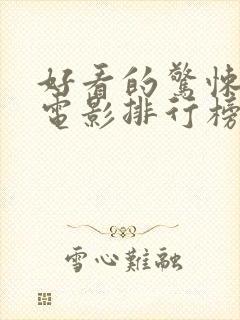 好看的驚悚
電影排行榜
雪心難融